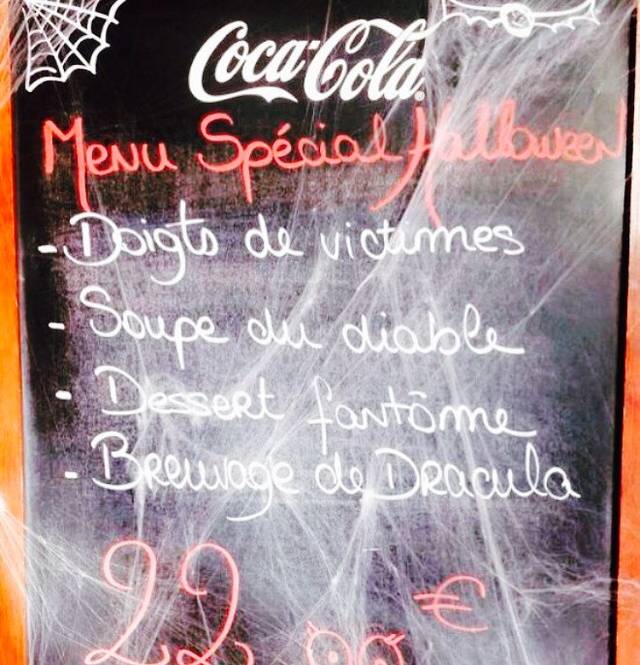 Coca-Cola
Menu Spécial Halloween
- Doigts de victimes
- Soupe du diable
- Dessert fantôme
- Breuvage de Dracula
22 €